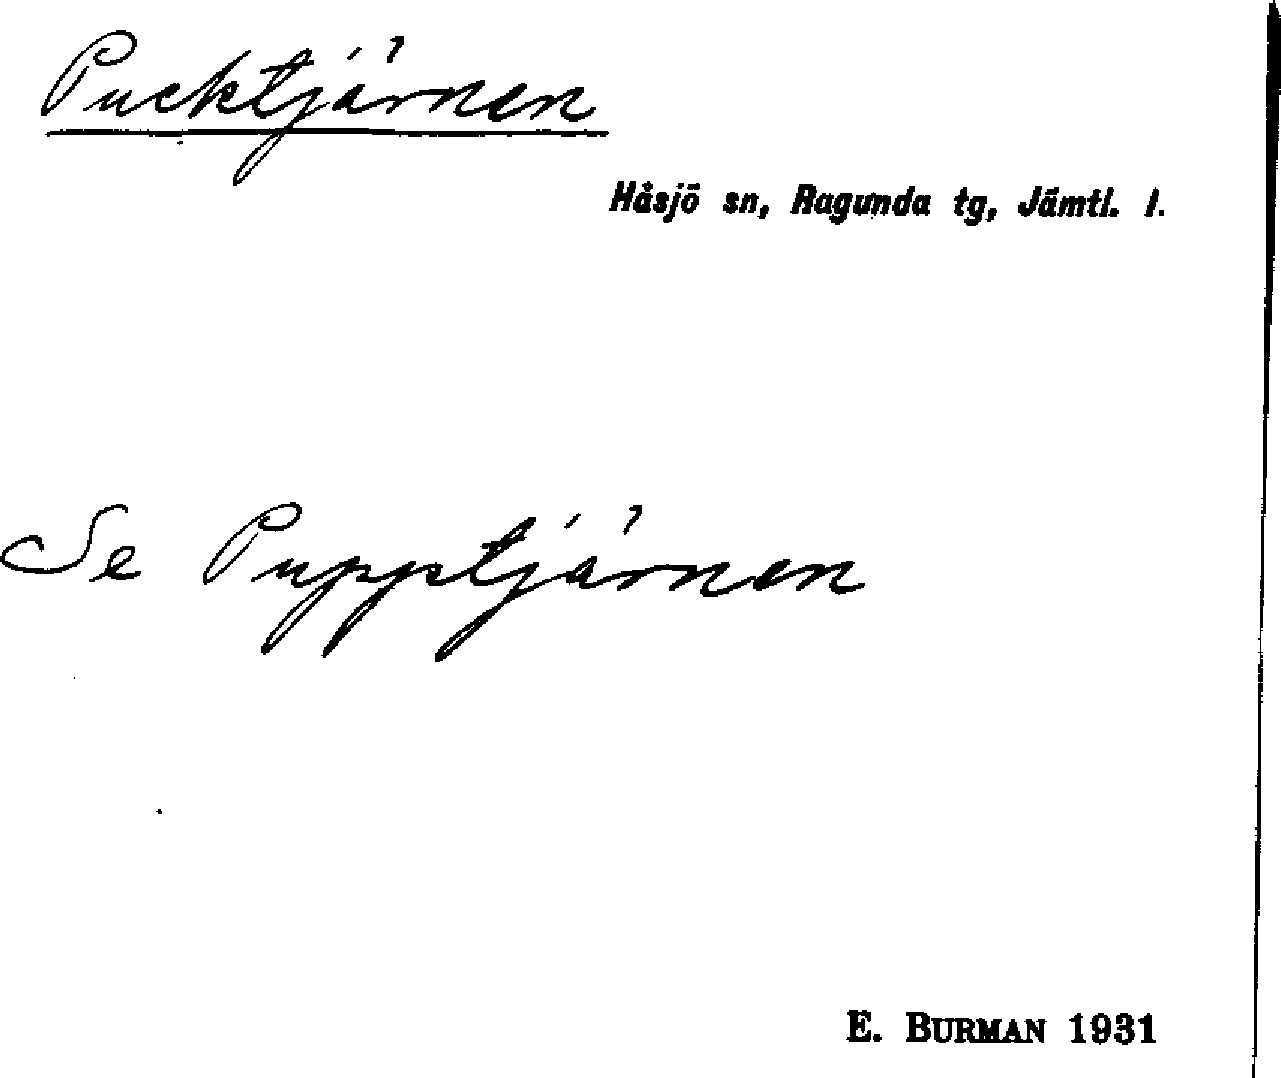 Pucktjärnen
Håsjö sn, Ragunda tg, Jämtl. l.
Se Pupptjärnen
E. BURMAN 1931